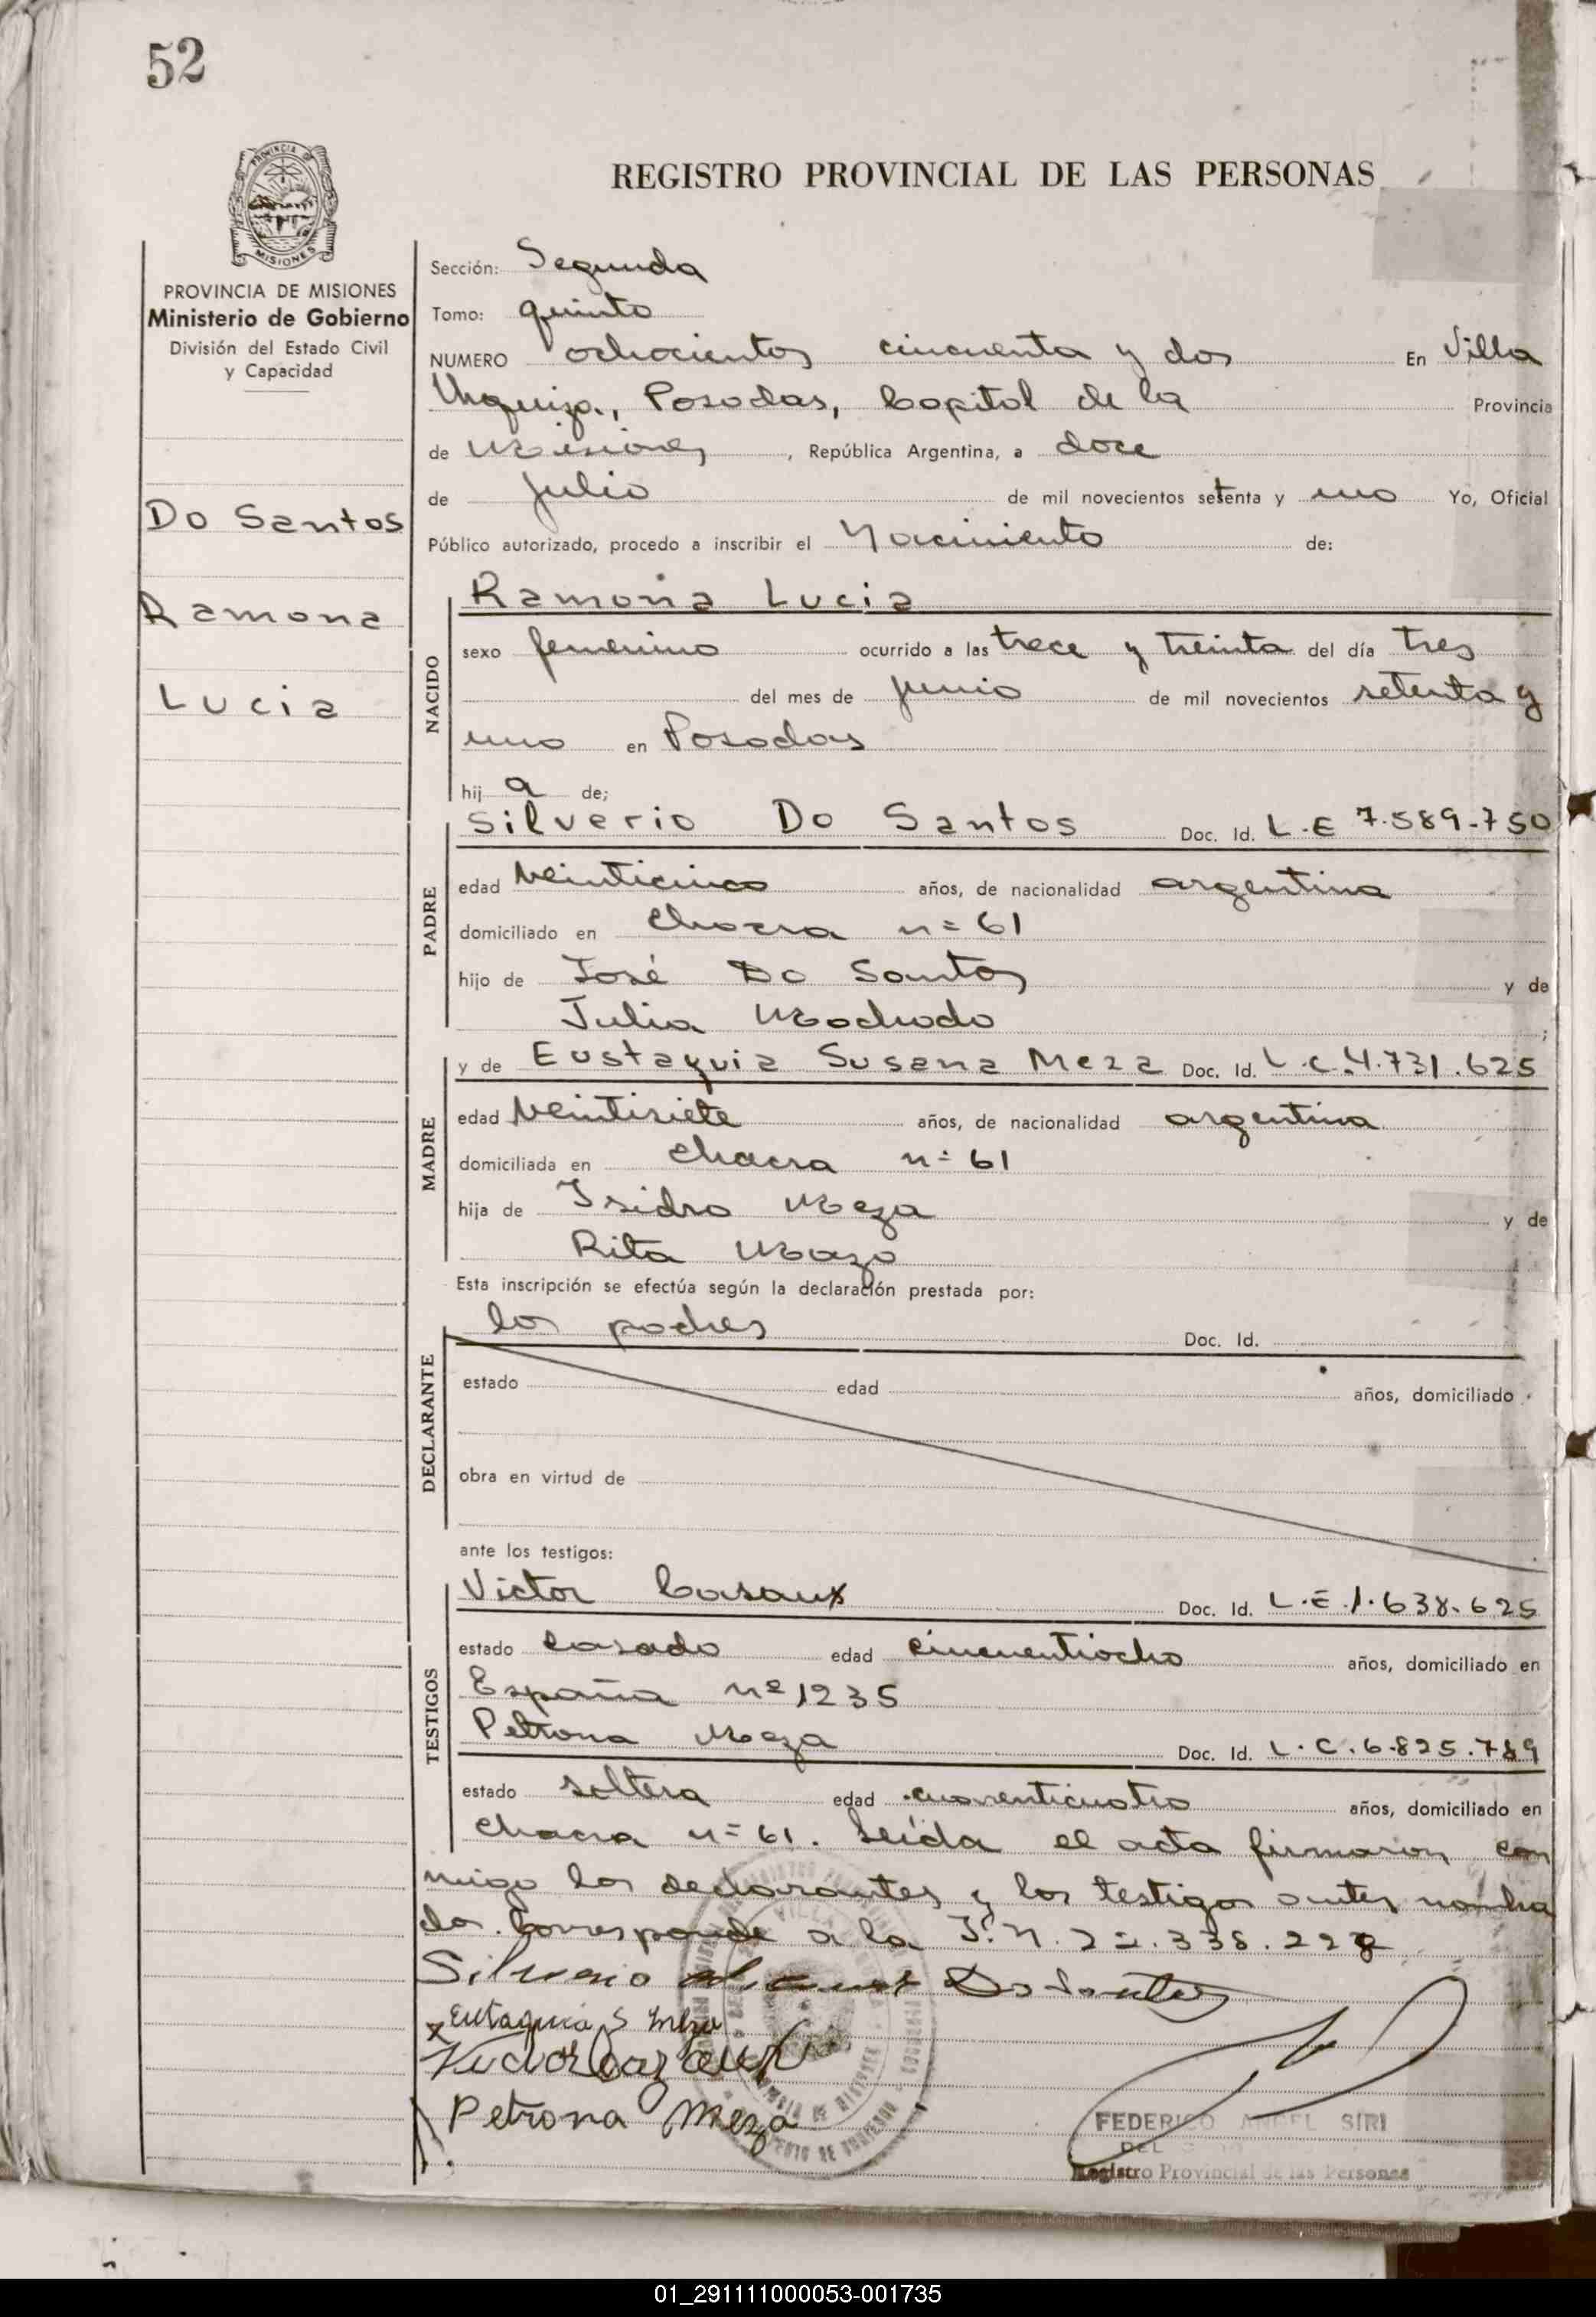 52
REGISTRO PROVINCIAL DE LAS PERSONAS
PROVINCIA DE MISIONES
Ministerio de Gobierno
División del Estado Civil
y Capacidad
Do Santos
Ramona
Lucia
Sección: Segunda
Tomo: quinto
NUMERO ochocientos cincuenta y dos En Villa
Urquiza, Posadas, Capital de la Provincia
de Misiones, República Argentina, a doce
de Julio de mil novecientos setenta y uno Yo, Oficial
Público autorizado, procedo a inscribir el Nacimiento de:
NACIDO
Ramona Lucia
sexo femenino ocurrido a las trece y treinta del día tres
del mes de junio de mil novecientos setenta y
uno en Posadas
hij a de;
PADRE
Silverio Do Santos Doc. Id. L.E 7.589.750
edad veinticinco años, de nacionalidad argentina
domiciliado en chacra n= 61
hijo de José Do Santos y de
Julia Machado ;
MADRE
y de Eustaquia Susana Meza Doc. Id. L.C.4.731.625
edad veintisiete años, de nacionalidad argentina
domiciliada en chacra n= 61
hija de Isidro Meza y de
Rita Mazo
Esta inscripción se efectúa según la declaración prestada por:
DECLARANTE
los padres Doc. Id.
estado edad años, domiciliado
obra en virtud de
ante los testigos:
TESTIGOS
Victor Casaux Doc. Id. L.E.1.638.625
estado casado edad cincuentiocho años, domiciliado en
España nº 1235
Petrona Meza Doc. Id. L.C.6.825.789
estado soltera edad cuarenticuatro años, domiciliado en
chacra n= 61. Leída el acta firmaron con
migo los declarantes y los testigos antes nombra
dos. Corresponde a la I.N. 22.338.228
Silverio Do Santos
x Eutaquia S Meza
Victor Cazaux
Petrona Meza
FEDERICO ANGEL SIRI
Registro Provincial de las Personas
01_291111000053-001735